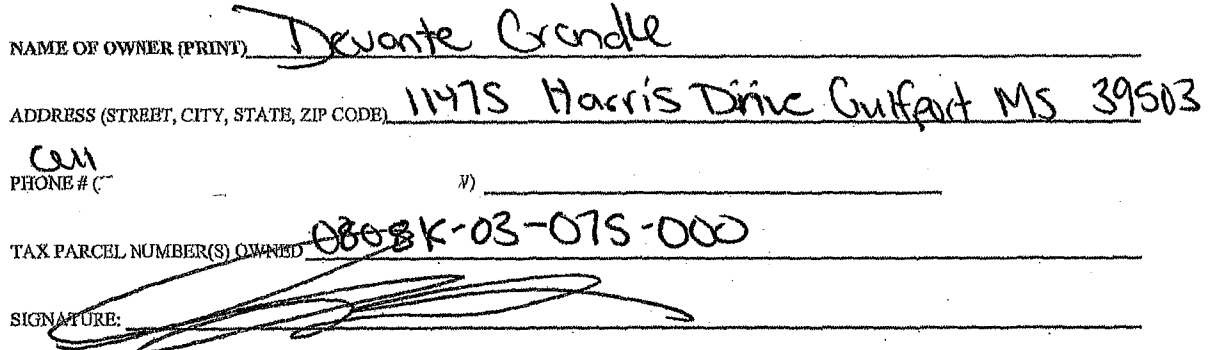 NAME OF OWNER (PRINT) Devante Crandle
ADDRESS (STREET, CITY, STATE, ZIP CODE) 11475 Harris Drive Gulfport MS 39503
Cell
PHONE # ( W)
TAX PARCEL NUMBER(S) OWNED 0808K-03-075-000
SIGNATURE: